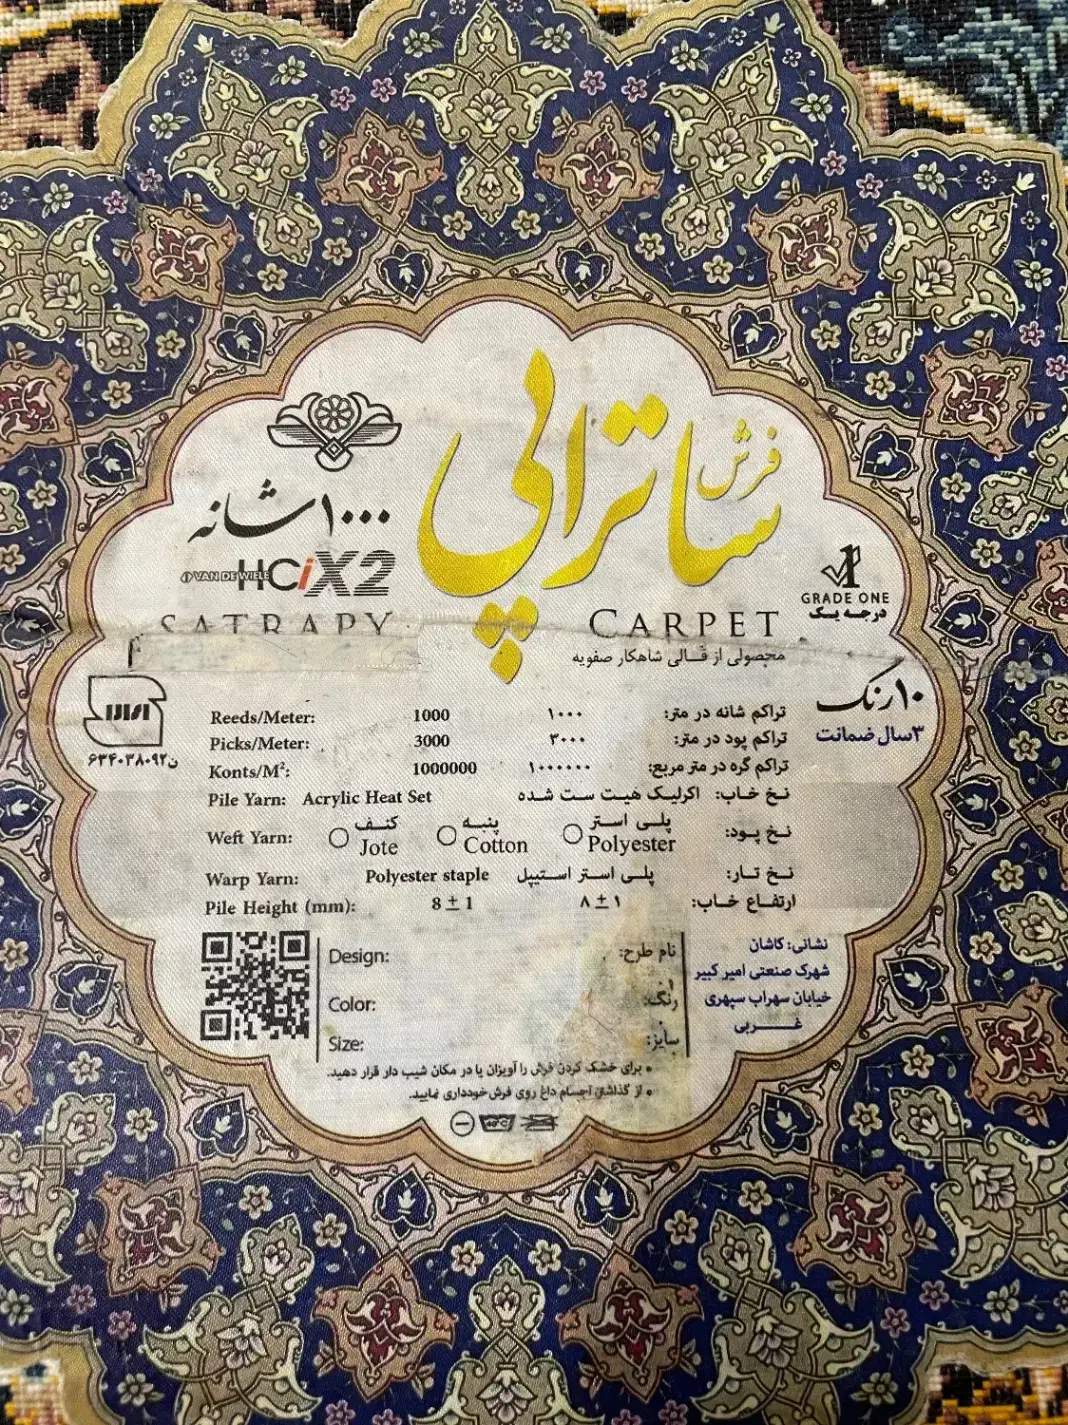 فرش
ساتراپی
۱۰۰۰ شانه
VAN DE WIELE HCiX2
SATRAPY CARPET
GRADE ONE
درجه یک
محصولی از قالی شاهکار صفویه
۱۰ رنگ
۳ سال ضمانت
ن۶۳۴۰۳۸۰۹۲
Reeds/Meter: 1000 ۱۰۰۰ تراکم شانه در متر:
Picks/Meter: 3000 ۳۰۰۰ تراکم پود در متر:
Konts/M²: 1000000 ۱۰۰۰۰۰۰ تراکم گره در متر مربع:
Pile Yarn: Acrylic Heat Set نخ خاب: اکرلیک هیت ست شده
Weft Yarn: کنف Jote پنبه Cotton پلی استر Polyester نخ پود:
Warp Yarn: Polyester staple نخ تار: پلی استر استیپل
Pile Height (mm): 8 ± 1 ۸ ± ۱ ارتفاع خاب:
Design: نام طرح:
Color: رنگ:
Size: سایز:
نشانی: کاشان
شهرک صنعتی امیر کبیر
خیابان سهراب سپهری
غربی
• برای خشک کردن فرش را آویزان یا در مکان شیب دار قرار دهید.
• از گذاشتن اجسام داغ روی فرش خودداری نمایید.